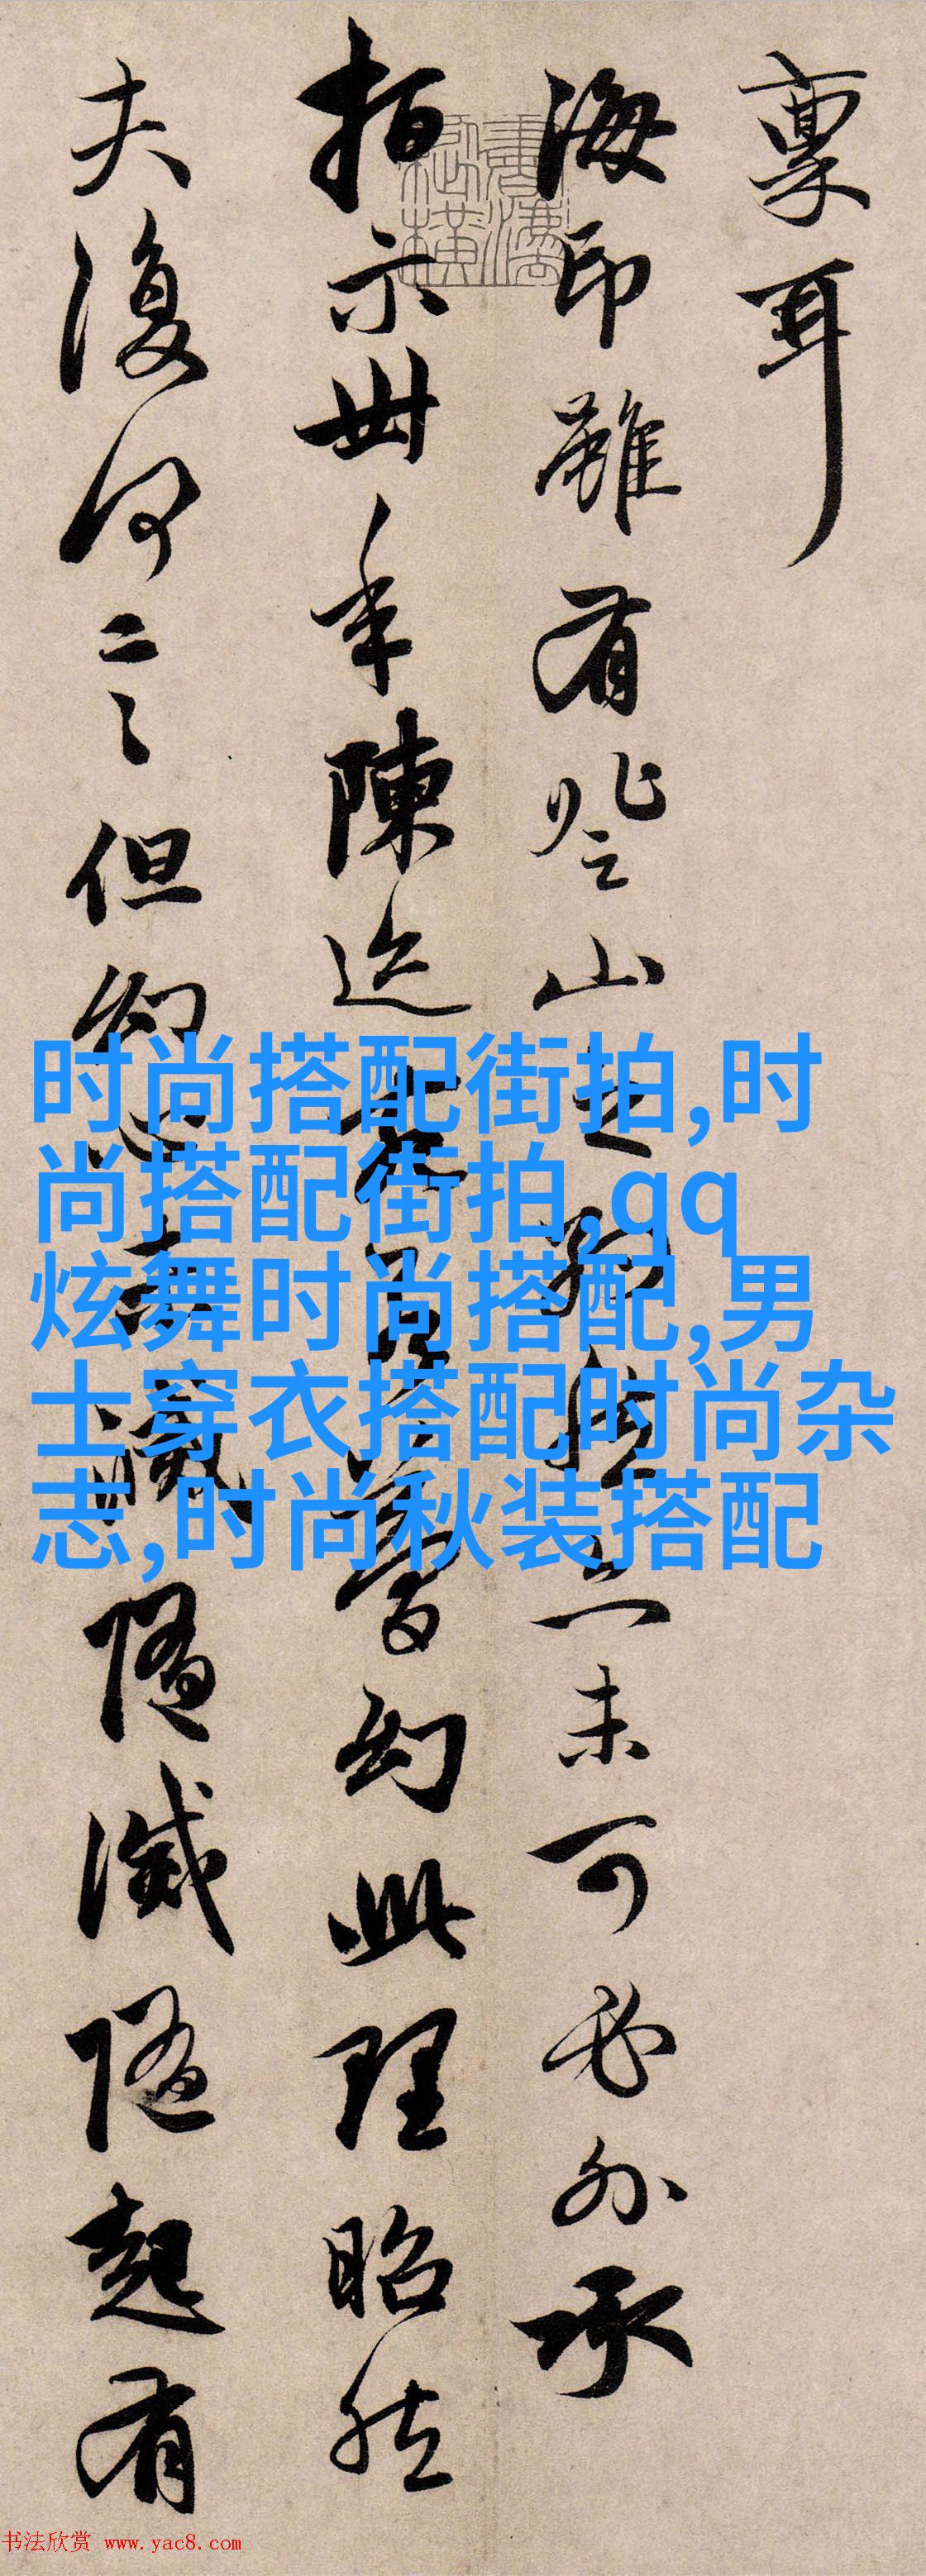 稟耳
海印雖有登山之約未可必外承
指示卅年陳迹夢幻此理昭然
夫復何言但幻心隨滅隨起有
时尚搭配街拍,时
尚搭配街拍,qq
炫舞时尚搭配,男
士穿衣搭配时尚杂
志,时尚秋装搭配
书法欣赏 www.yac8.com